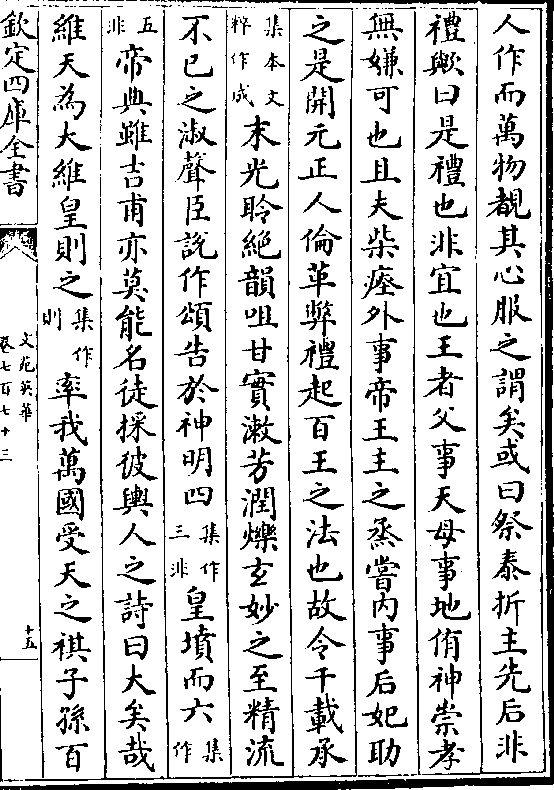 人作而萬物覩其心服之謂矣或曰祭泰折主先后非
禮歟曰是禮也非宜也王者父事天母事地侑神崇孝
無嫌可也且夫柴瘞外事帝王主之烝嘗内事后妃助
之是開元正人倫革弊禮起百王之法也故令千載承
集本文粹作成末光聆絶韻咀甘實漱芳潤爍玄妙之至精流
不已之淑聲臣説作頌告於神明四集作三非皇墳而六集作
五非帝典雖吉甫亦莫能名徒採彼輿人之詩曰大矣哉
維天為大維皇則之集作則率我萬國受天之祺子孫百
欽定四庫全書
文苑英華
卷七百七十三
十五